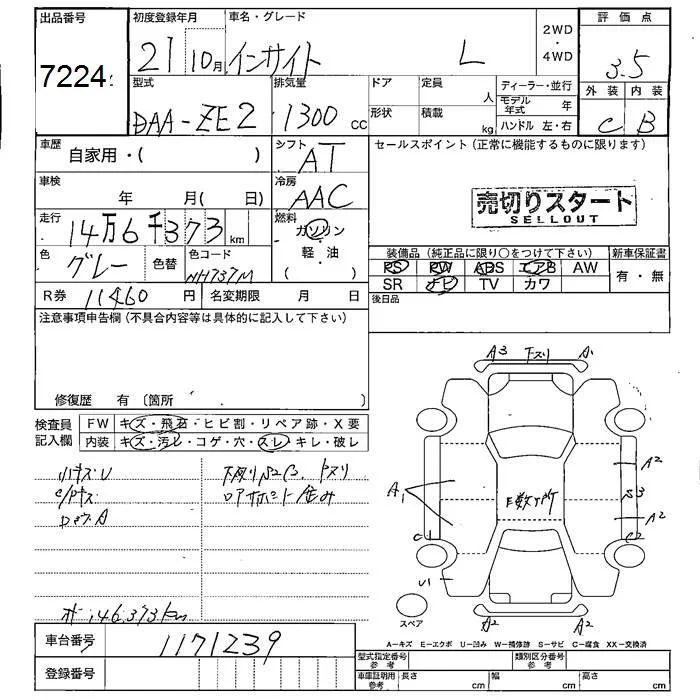 出品番号 初度登録年月 車名・グレード 2WD・4WD 評価点
7224 21 10月 インサイト L 3.5
型式 排気量 ドア 定員 人 ディーラー・並行 外装 内装
DAA-ZE2 1300 cc 形状 積載 kg モデル年式 年 C B
ハンドル 左・右
車歴 自家用・( ) シフト AT セールスポイント (正常に機能するものに限ります)
車検 年 月( 日) 冷房 AAC
売切りスタート
SELLOUT
走行 14万6千373km 燃料 ガソリン
軽・油
( )
色 グレー 色替 色コード NH737M
装備品 (純正品に限り○をつけて下さい) 新車保証書
PS PW ABS エアB AW 有・無
SR ナビ TV カワ
R券 11460 円 名変期限 月 日 後日品
注意事項申告欄 (不具合内容等は具体的に記入して下さい)
修復歴 有 〔箇所 〕
A3 下スリ A1
検査員記入欄 FW キズ・飛石・ヒビ割・リペア跡・X要
内装 キズ・汚レ・コゲ・穴・スレ・キレ・破レ
A1 A2
B3
A2
C1 C2
U1
ハキズU
オ 146,373km
スペア
A2 A2
車台番号 1171239
登録番号
A-キズ E-エクボ U-凹み W-補修跡 S-サビ C-腐食 XX-交換済
型式指定番号 参考 類別区分番号 参考
車庫証明用 参考 長さ cm 幅 cm 高さ cm